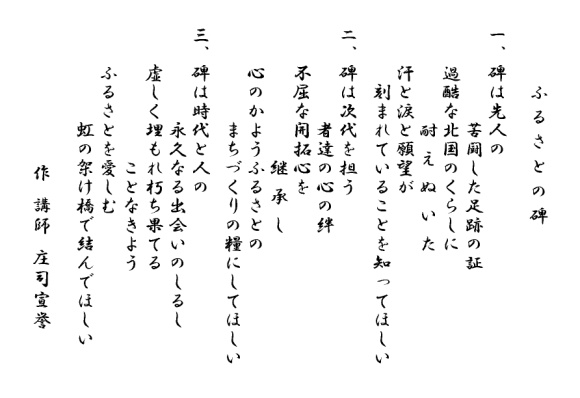 ふるさとの碑
一、碑は先人の
苦闘した足跡の証
過酷な北国のくらしに
耐えぬいた
汗と涙と願望が
刻まれていることを知ってほしい
二、碑は次代を担う
者達の心の絆
不屈な開拓心を
継承し
心のかようふるさとの
まちづくりの糧にしてほしい
三、碑は時代と人の
永久なる出会いのしるし
虚しく埋もれ朽ち果てる
ことなきよう
ふるさとを愛しむ
虹の架け橋で結んでほしい
作 講師 庄司宣誉